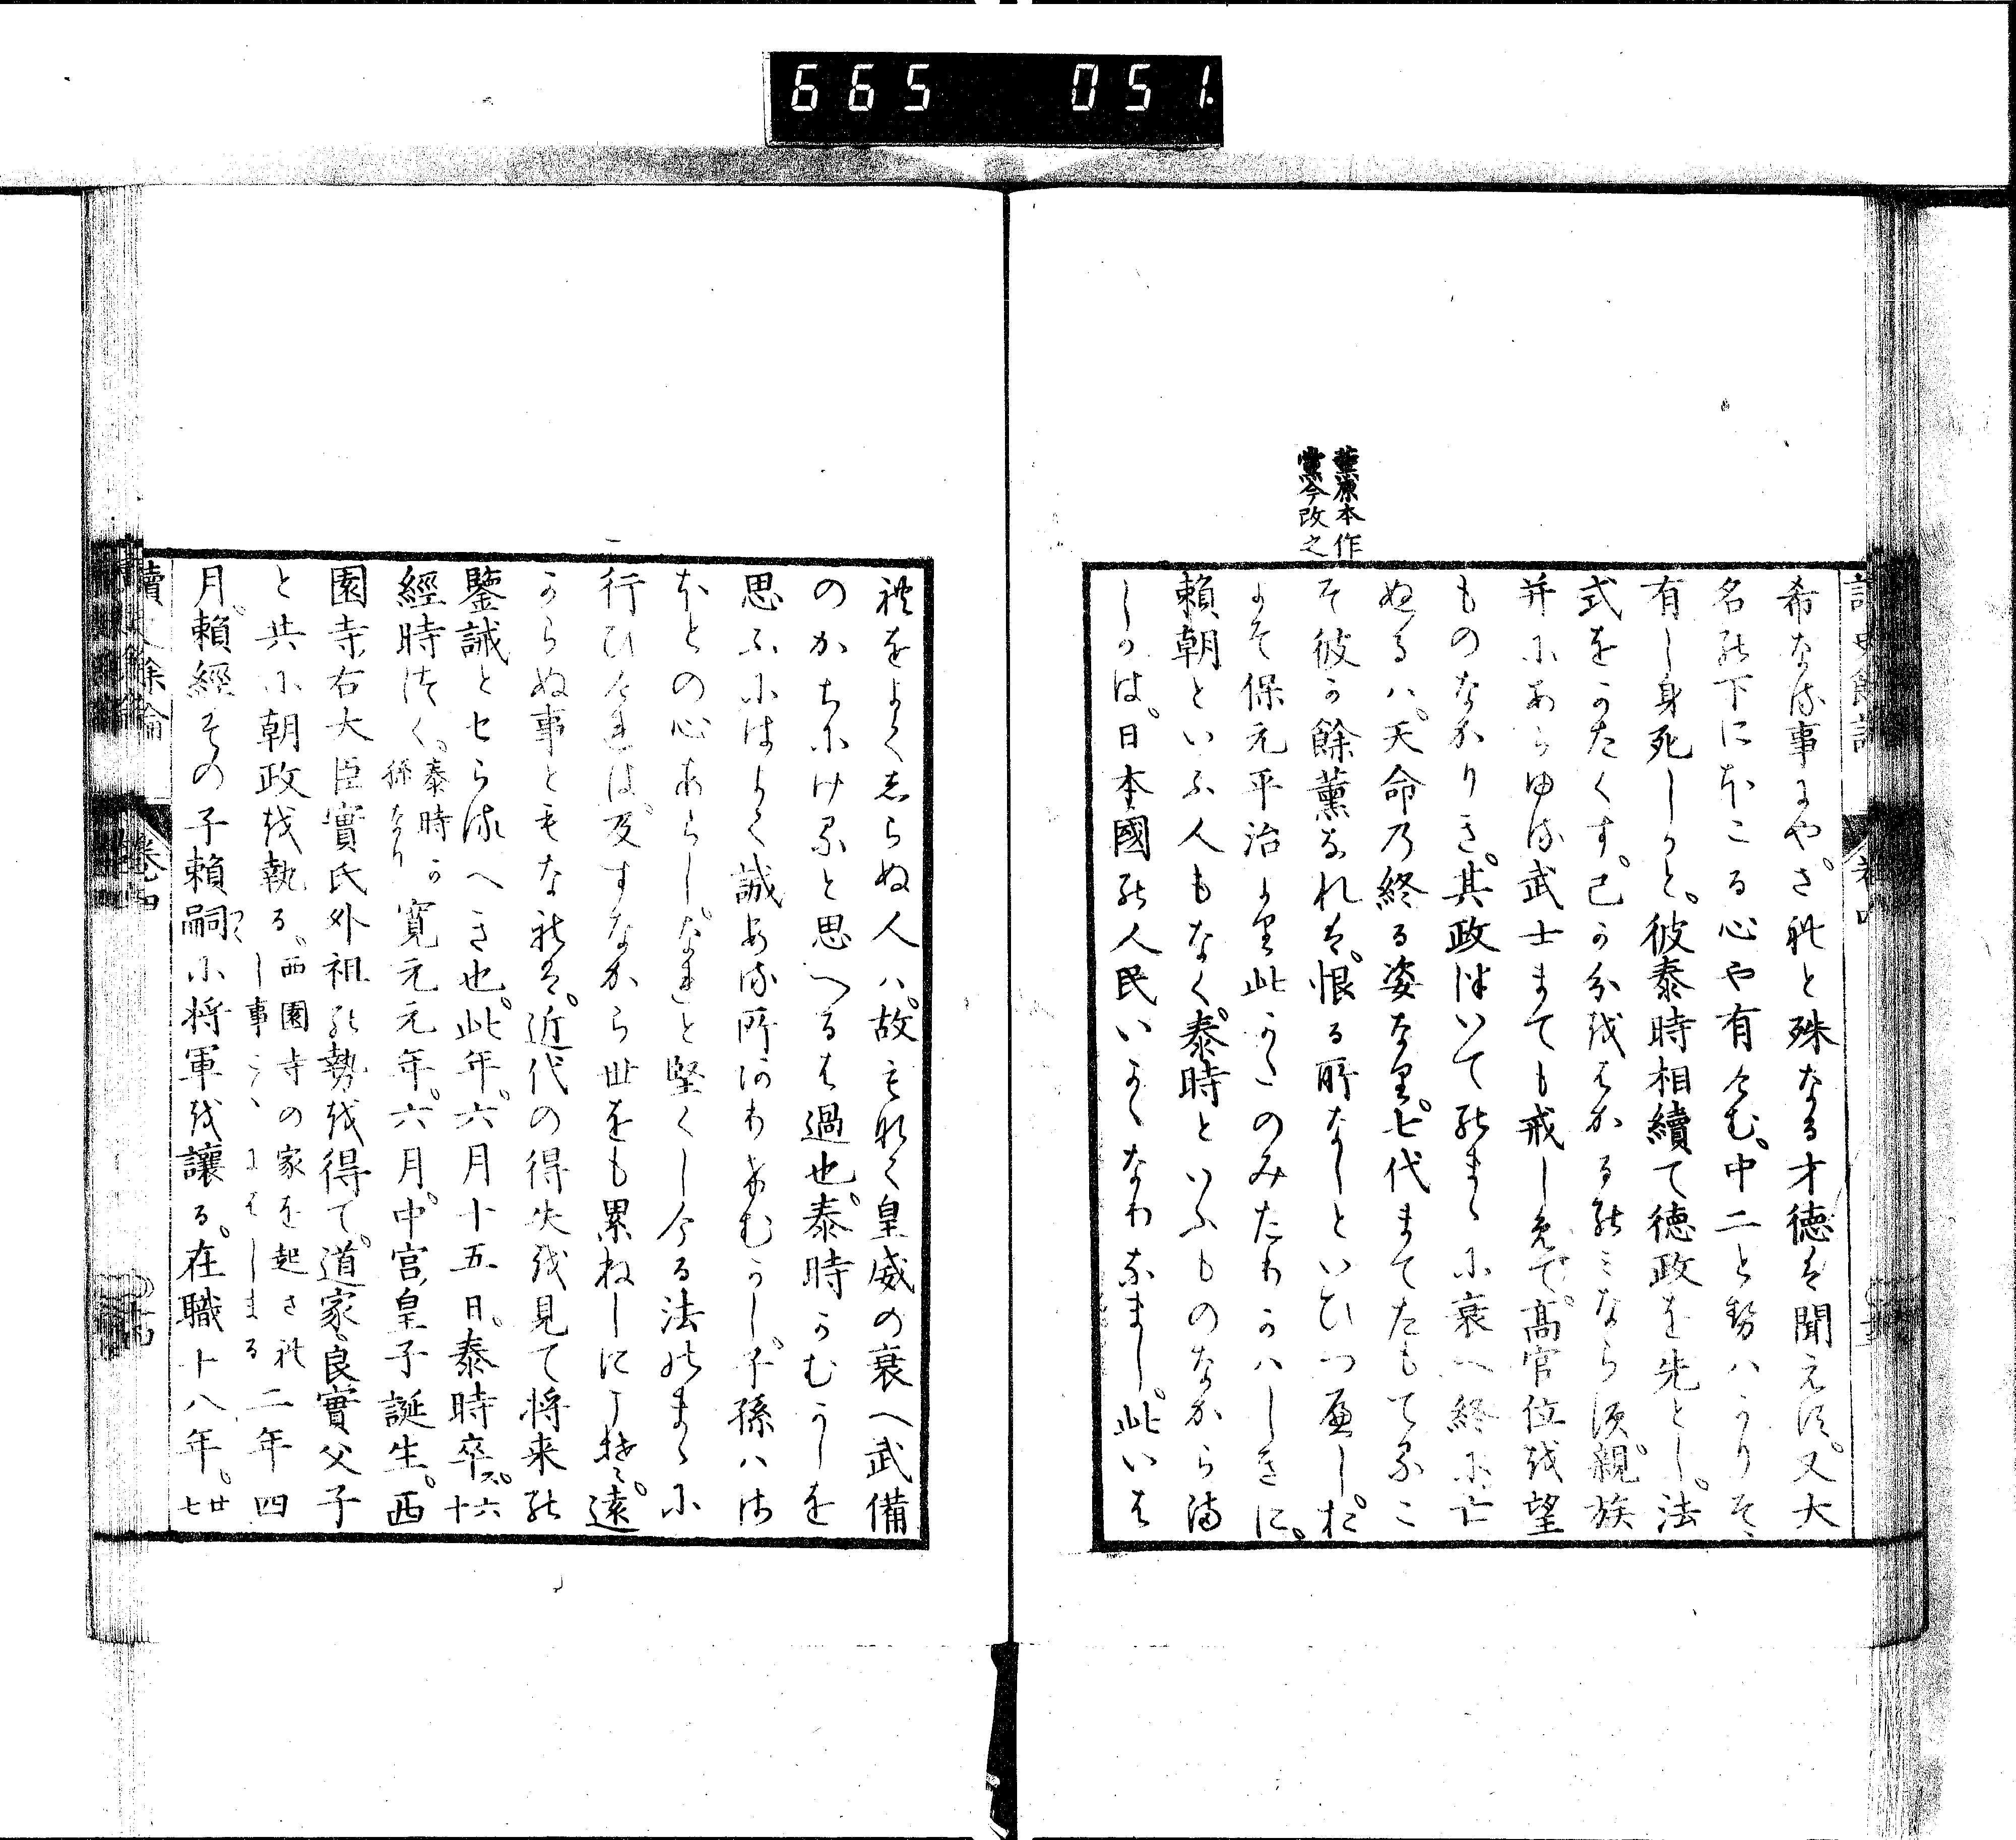 665 051
讀史餘論 卷四
薰原本作
黨今改之
希なる事にや。されと殊なる才徳は聞えす。又大
名の下にほこる心や有けむ。中二とせはかりそ
有し身死しかと。彼泰時相續て徳政を先とし。法
式をかたくす。己か分をはかるのミならす親族
并にあらゆる武士まても戒しめて。高官位を望
ものなかりき。其政次いてのまゝに衰へ終に亡
ぬるハ。天命の終る姿なり。七代まてたもてるこ
そ彼か餘薰なれは。恨る所なしといひつへし。お
よそ保元平治より此かたのみたりかハしきに。
頼朝といふ人もなく。泰時といふものなからま
しかは。日本國の人民いかゝなりなまし。此いは
れをよくしらぬ人ハ。故もなく皇威の衰へ武備
のかちにけると思へるは過也。泰時かむかしを
思ふにはよく誠ある所ありけむかし。子孫ハさ
ほとの心あらしなれと堅くしける法のまゝに
行ひけれは及すなから世をも累ねしにこそ。遠
からぬ事ともなれは。近代の得失を見て将来の
鑒誡とせらるへき也。此年。六月十五日。泰時卒ス。六十
經時つく。泰時か孫なり 寛元元年。六月。中宮皇子誕生。西
園寺右大臣實氏外祖の勢を得て。道家良實父子
と共に朝政を執る。西園寺の家を起されし事こゝにはしまる 二年四
月。頼經その子頼嗣つくに将軍を讓る。在職十八年。廿七
讀史餘論 卷四 十四